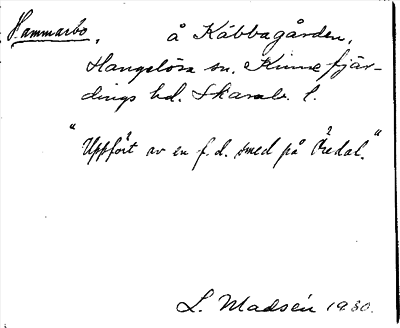 Hammarbo, å Kåbbagården,
Hangelösa sn. Kinnefjär-
dings hd. Skarab. l.
"Uppfört av en f.d. smed på Öredal."
L. Madsén 1930.